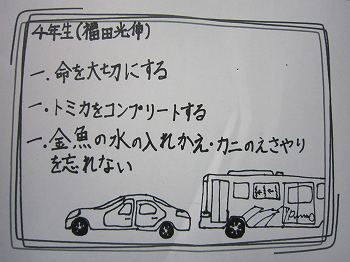 4年生(福田光伸)
一.命を大切にする
一.トミカをコンプリートする
一.金魚の水の入れかえ・カニのえさやり
を忘れない